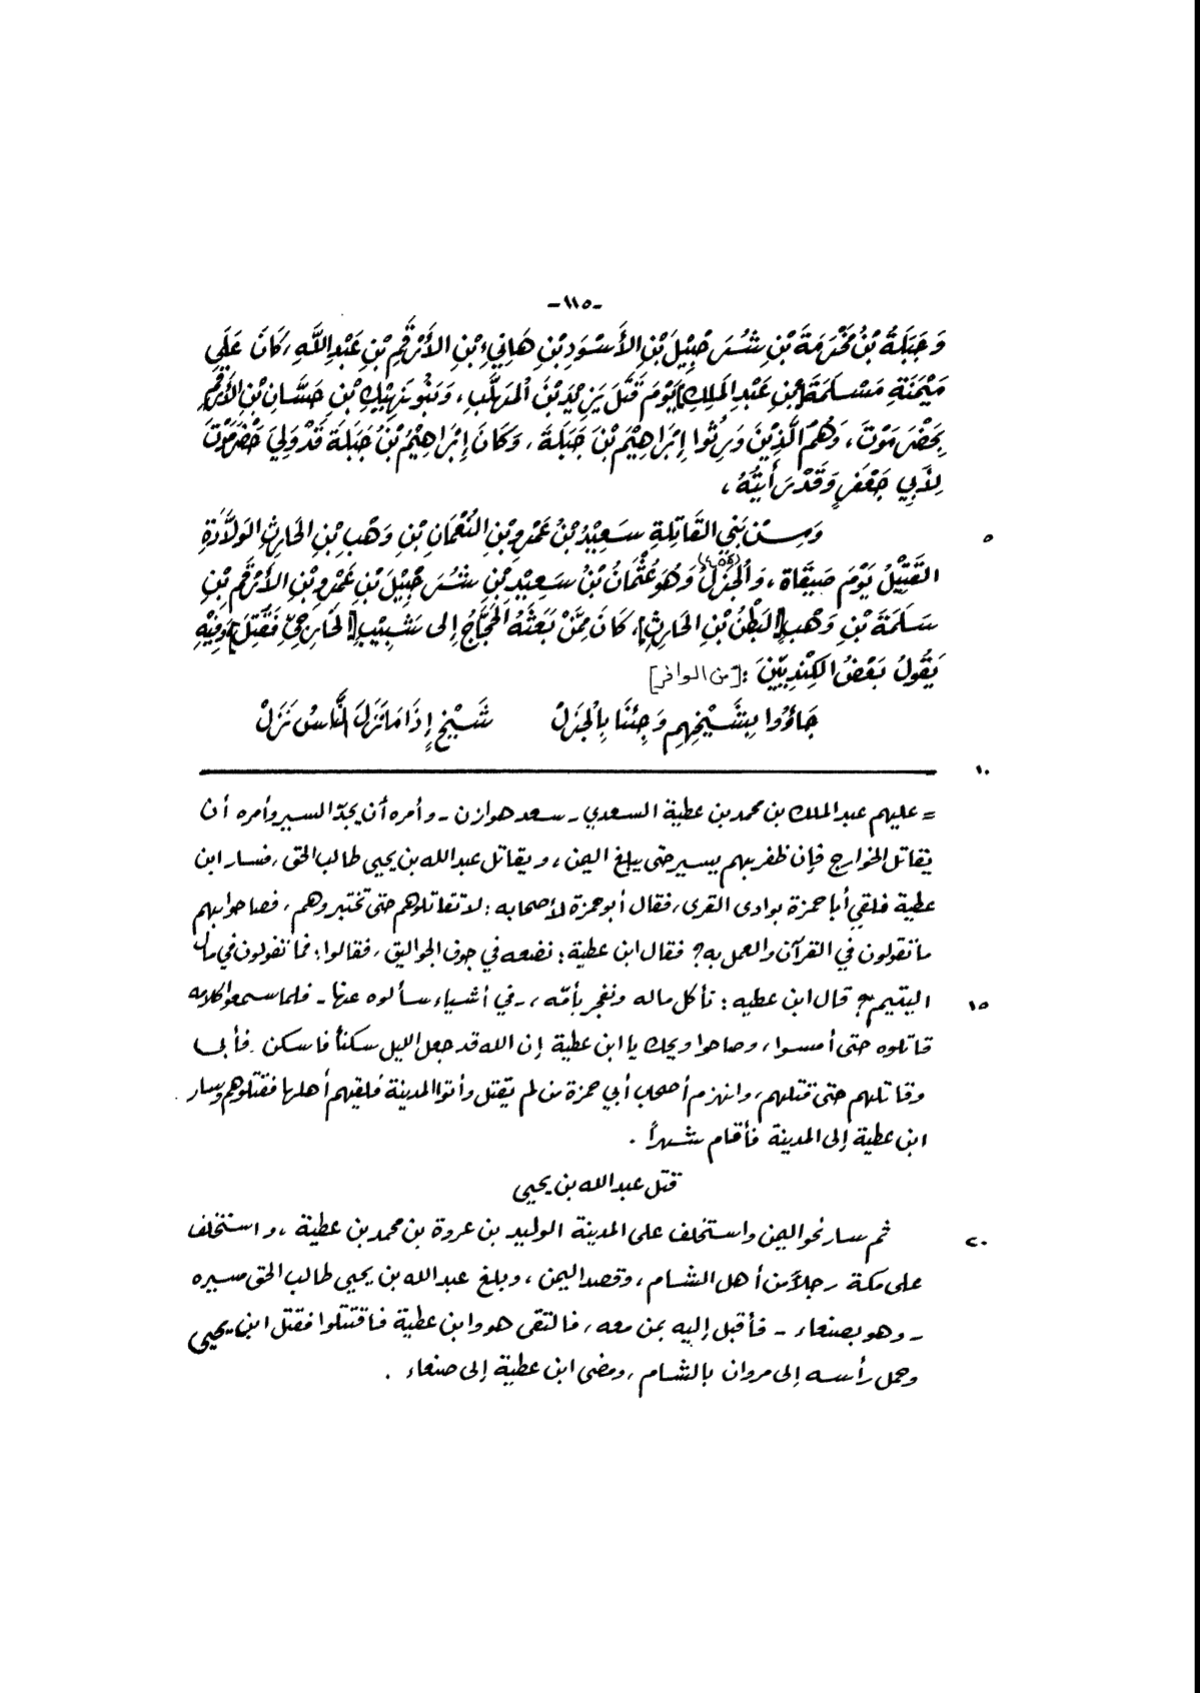 -١١٥-
وَجَبَلَةُ بْنُ مَخْرَمَةَ بْنِ شُرَحْبِيْلَ بْنِ الأَسْوَدِ بْنِ هَانِيْءِ بْنِ الأَرْقَمِ بْنِ عَبْدِ اللَّهِ، كَانَ عَلَى
مَيْمَنَةِ مَسْلَمَةَ [بْنِ عَبْدِ المَلِكِ] يَوْمَ قَتَلَ يَزِيْدَ بْنَ المُهَلَّبِ، وَبَنُو نَهِيْكِ بْنِ حَسَّانِ بْنِ الأَرْقَمِ
بِحَضْرَمَوْتَ، وَهُمُ الَّذِيْنَ وَرِثُوا إِبْرَاهِيْمَ بْنَ جَبَلَةَ، وَكَانَ إِبْرَاهِيْمُ بْنُ جَبَلَةَ قَدْ وَلِيَ حَضْرَمَوْتَ
لِأَبِي جَعْفَرٍ وَقَدْ رَأَيْتُهُ،
٥ وَمِنْ بَنِي القَاتِلَةِ سَعِيْدُ بْنُ عَمْرِو بْنِ النُّعْمَانِ بْنِ وَهْبِ بْنِ الحَارِثِ الوَلاَّدَةِ
القَتِيْلُ يَوْمَ صَيْقَاةَ، وَالجَزْلُ وَهُوَ عُثْمَانُ بْنُ سَعِيْدِ بْنِ شُرَحْبِيْلَ بْنِ عَمْرِو بْنِ الأَرْقَمِ بْنِ
سَلَمَةَ بْنِ وَهْبِ [البَطْنُ بْنِ الحَارِثِ]، كَانَ مِمَّنْ بَعَثَهُ الحَجَّاجُ إِلَى شَبِيْبٍ [الخَارِجِيِّ فَقُتِلَ] وَفِيْهِ
يَقُولُ بَعْضُ الكِنْدِيِّيْنَ : [من الوافر]
جَاؤُوا بِشَيْخِهِم وَجِئْنَا بِالْجَزَلْ شَيْخٍ إِذَا مَا نَزَلَ النَّاسُ نَزَلْ
١٠
= عليهم عبد الملك بن محمد بن عطية السعدي - سعد هوازن - وأمره أن يجدّ السير وأمره أن
يقاتل الخوارج فإن ظفر بهم يسير حتى يبلغ اليمن، ويقاتل عبد الله بن يحيى طالب الحق، فسار ابن
عطية فلقي أبا حمزة بوادي القرى، فقال أبو حمزة لأصحابه : لا تقاتلوهم حتى تختبروهم، فصاحوا بهم
ما تقولون في القرآن والعمل به؟ فقال ابن عطية : نضعه في جوف الجواليق، فقالوا : فما تقولون في مال
١٥ اليتيم؟ قال ابن عطيه : نأكل ماله ونفجر بأمّه، - في أشياء سألوه عنها - فلما سمعوا كلامه
قاتلوه حتى أمسوا، وصاحوا ويحك يا ابن عطية إن الله قد جعل الليل سكناً فاسكن. فأبى
وقاتلهم حتى قتلهم، وانهزم أصحاب أبي حمزة من لم يقتل وأتوا المدينة فلقيهم أهلها فقتلوهم وسار
ابن عطية إلى المدينة فأقام شهراً .
قتل عبد الله بن يحيى
٢٠ ثم سار نحو اليمن واستخلف على المدينة الوليد بن عروة بن محمد بن عطية ، واستخلف
على مكة رجلاً من أهل الشام، وقصد اليمن، وبلغ عبد الله بن يحيى طالب الحق مسيره
- وهو بصنعاء - فأقبل إليه بمن معه، فالتقى هو وابن عطية فاقتتلوا فقتل ابن يحيى
وحمل رأسه إلى مروان بالشام، ومضى ابن عطية إلى صنعاء .